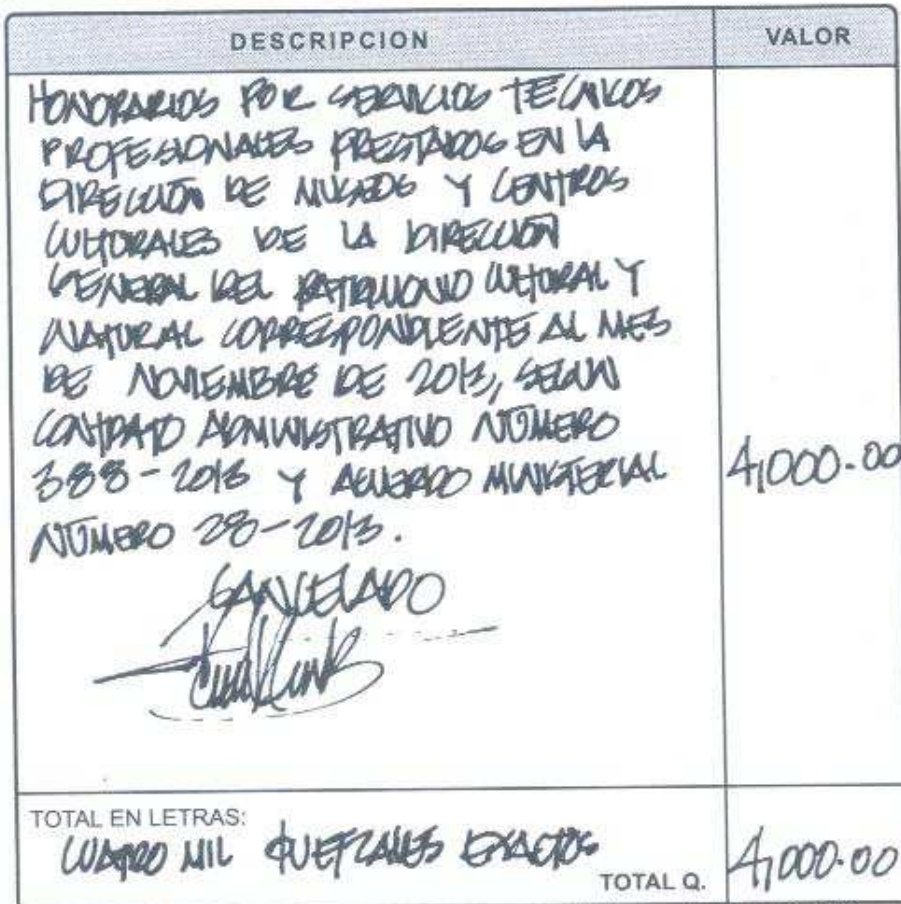 DESCRIPCION VALOR
HONORARIOS POR SERVICIOS TÉCNICOS
PROFESIONALES PRESTADOS EN LA
DIRECCIÓN DE MUSEOS Y CENTROS
CULTURALES DE LA DIRECCIÓN
GENERAL DEL PATRIMONIO CULTURAL Y
NATURAL CORRESPONDIENTE AL MES
DE NOVIEMBRE DE 2013, SEGÚN
CONTRATO ADMINISTRATIVO NÚMERO
388-2013 Y ACUERDO MINISTERIAL 4,000.00
NÚMERO 28-2013.
CANCELADO
TOTAL EN LETRAS:
CUATRO MIL QUETZALES EXACTOS
TOTAL Q. 4,000.00